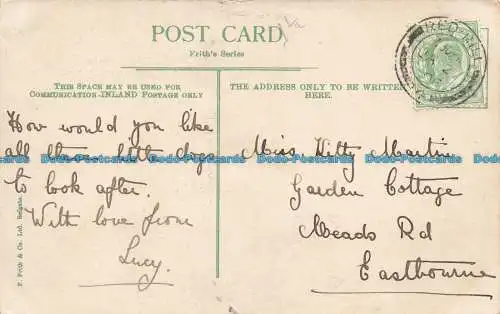 POST CARD
Frith's Series
THIS SPACE MAY BE USED FOR
COMMUNICATION-INLAND POSTAGE ONLY
THE ADDRESS ONLY TO BE WRITTEN
HERE.
RED HILL
How would you like
all these little dogs
to look after.
With love from
Lucy.
Miss Kitty Martin
Garden Cottage
Meads Rd
Eastbourne
F. Frith & Co. Ltd. Reigate.
Dodo-Postcards Dodo-Postcards Dodo-Postcards Dodo-Postcards Dodo-Postcards